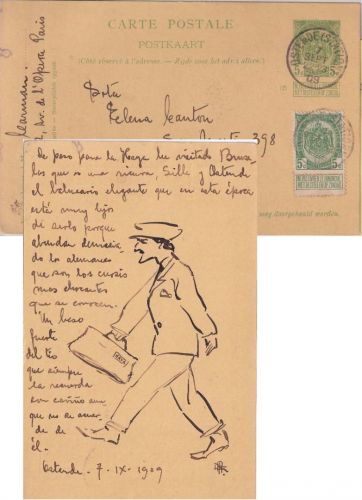 CARTE POSTALE
POSTKAART
(Côté réservé à l'adresse. — Zijde voor het adres alleen.)
OSTENDE
7
SEPT
09
5c
5c
Srta
Elena
398
av. de l'Opera Paris
De paso para la Haya he visitado Bruse
las que es una Lille y Ostende
el balneario elegante que en esta época
está muy lejos
de serlo porque
abundan demasia
do los alemanes
que son los cursis
mas chocantes
que se conocen.
Un beso
fuerte
del tio
que siempre
la recuerda
con cariño aun
que no se acuer
de de
él.
Ostende - 7 - IX - 1909